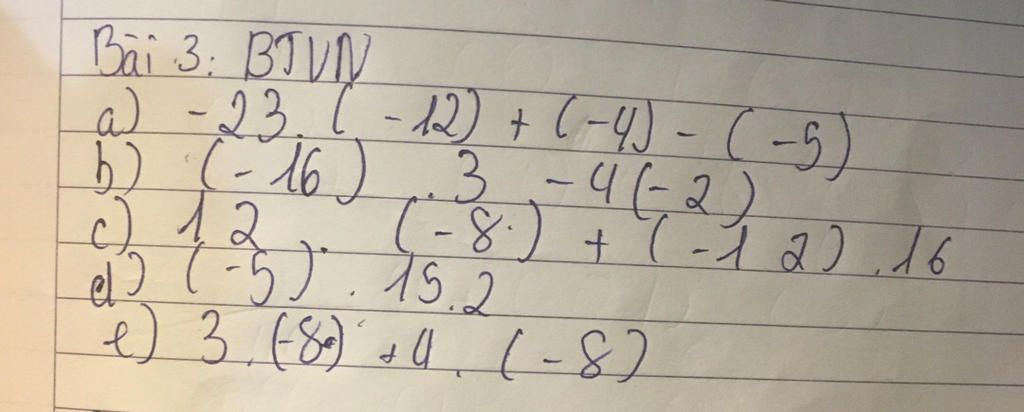 Bài 3: BTVN
a) -23. (-12) + (-4) - (-5)
b) (-16) . 3 - 4(-2)
c) 12 . (-8) + (-12) . 16
d) (-5) . 15.2
e) 3.(-8) + 4. (-8)